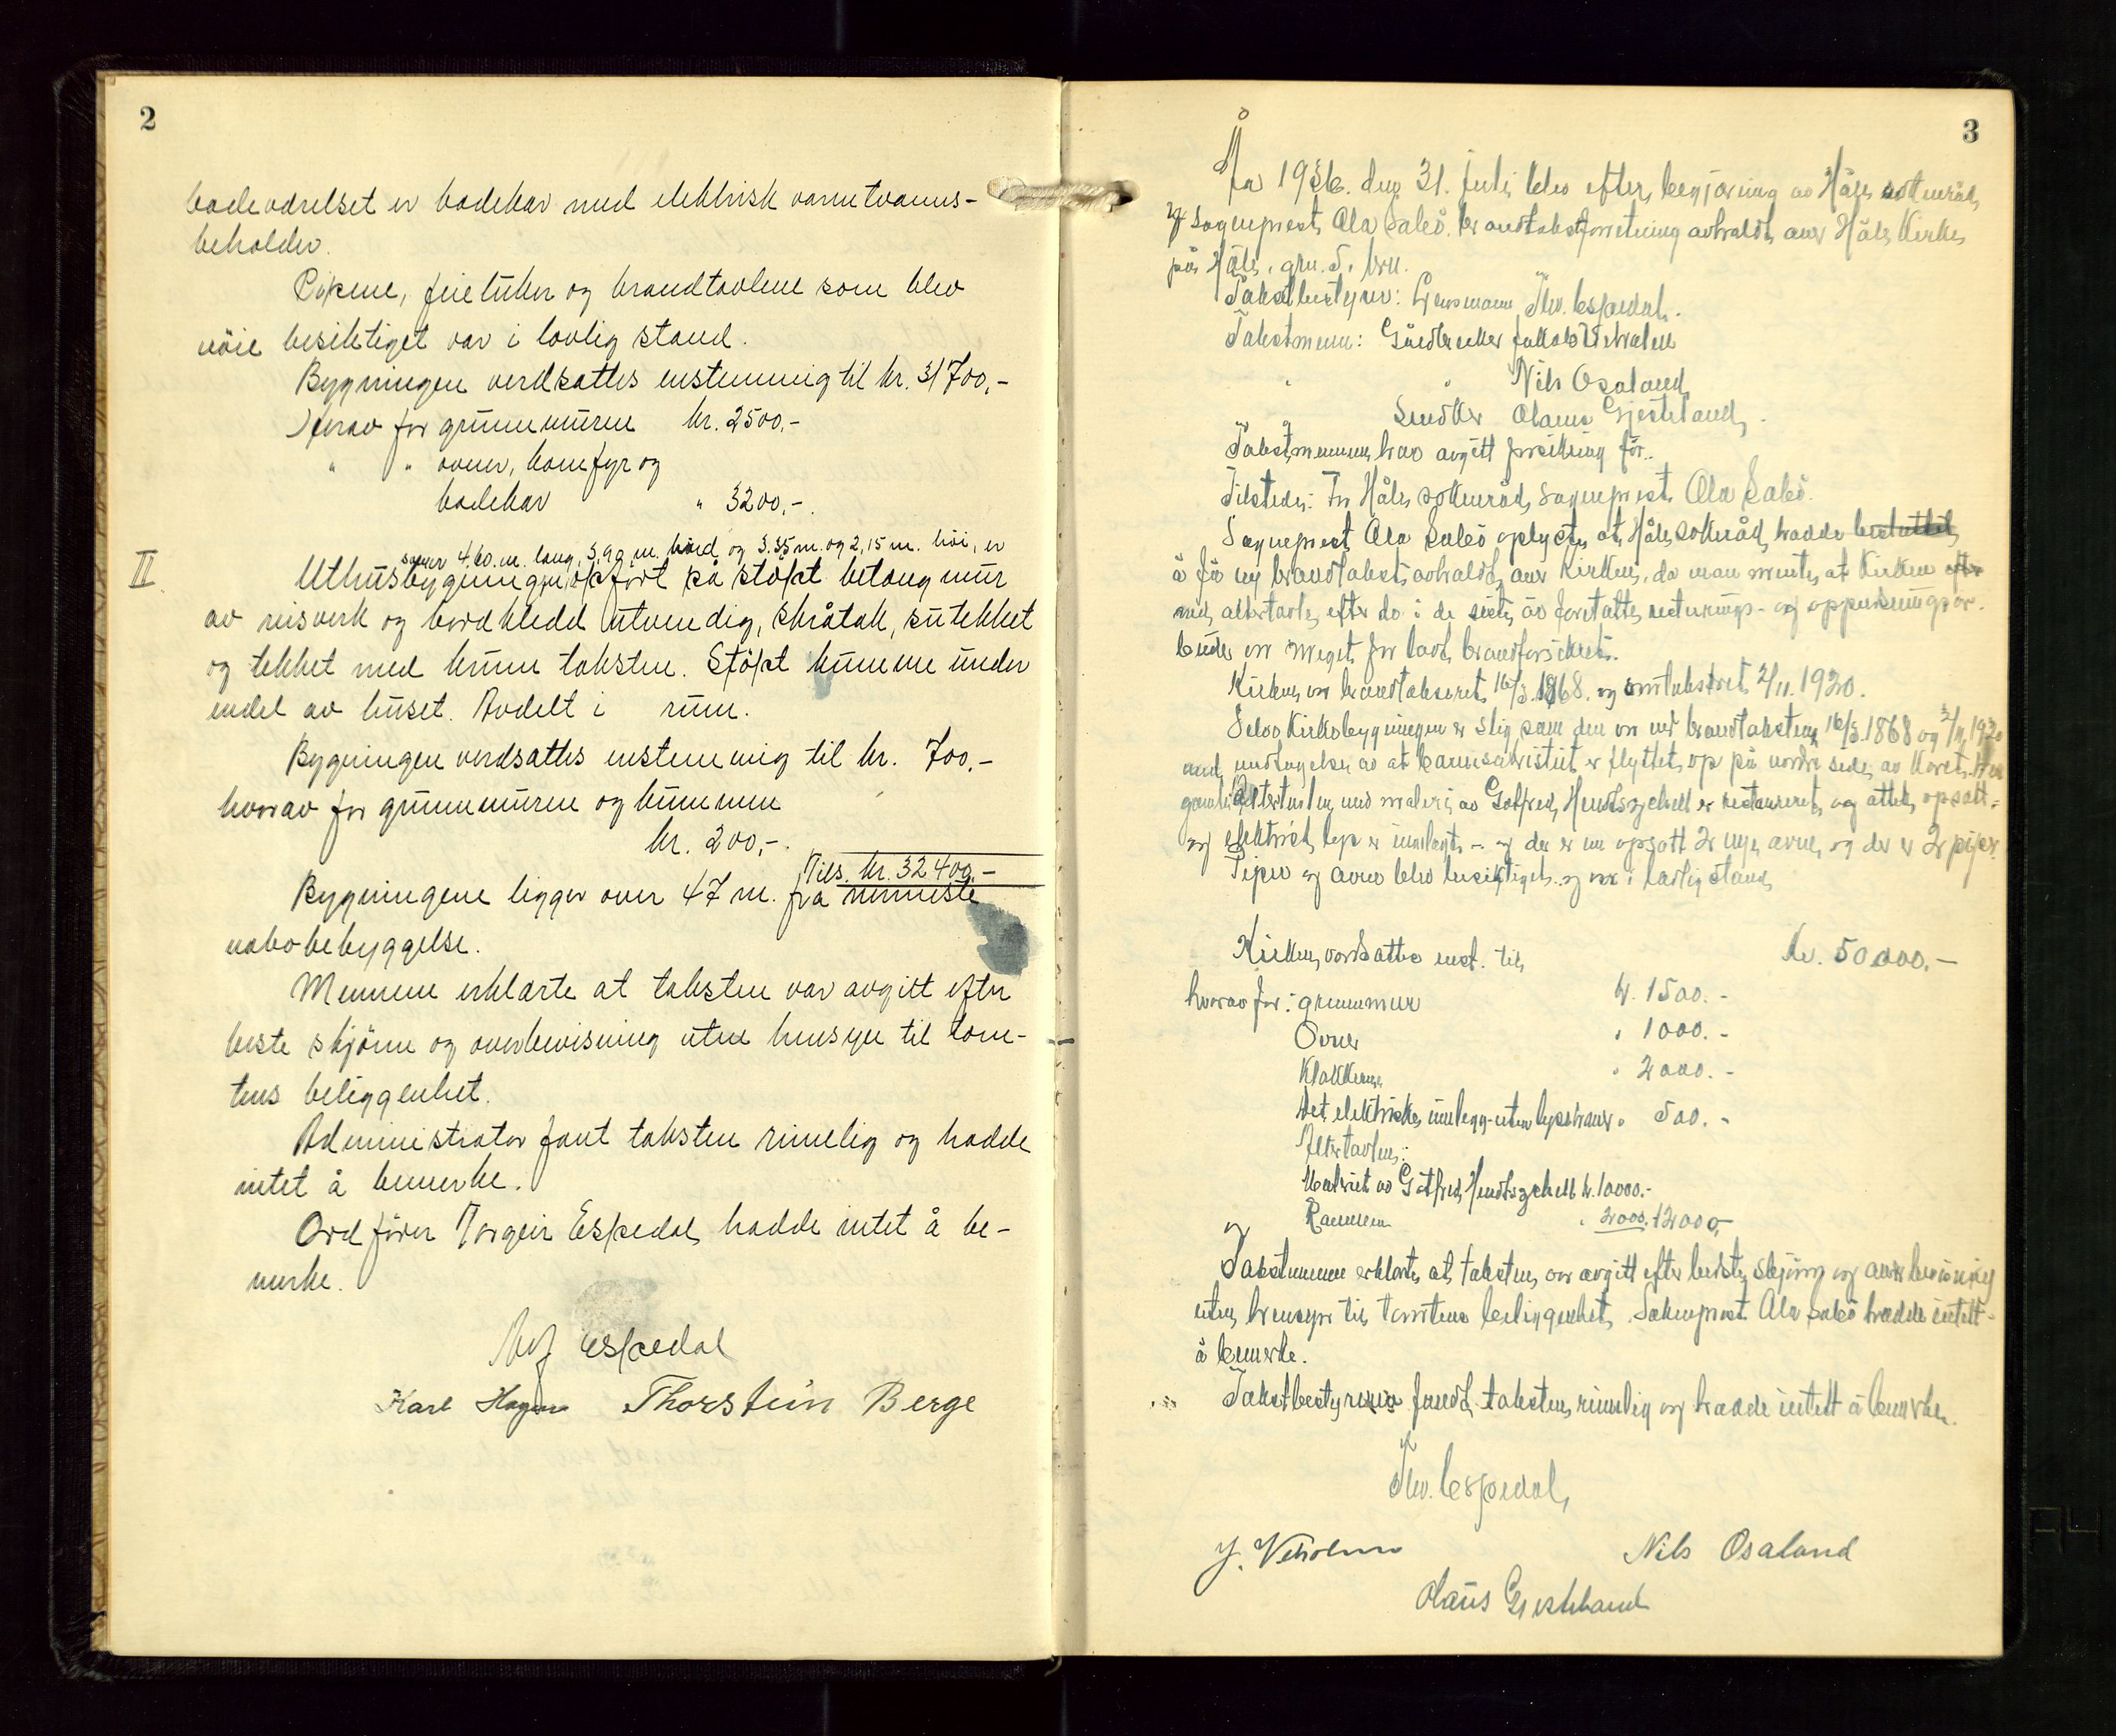 2
badeværelset er badekar med elektrisk varmtvanns-
beholder.
Pipene, feieluker og brandtavlene som blev
nöie besiktiget var i lovlig stand.
Bygningen verdsattes enstemmig til kr. 31700,-
Herav for grunnmuren kr. 2500,-
" " ovner, komfyr og
badekar " 3200,-.
svær 4,60 m. lang, 3,90 m. bred og 3.35 m. og 2,15 m. höi, er
II. Uthusbygningen opfört på stöpt betong mur
av reisverk og bordkledd utvendig, skråtak, sutekket
og tekket med krum taksten. Stöpt kumme under
endel av huset. Avdelt i rum.
Bygningen verdsattes enstemmig til kr. 700,-
hvorav for grunnmuren og kummen
kr. 200,-.
Tils. kr. 32400,-
Bygningene ligger over 47 m. fra nermeste
nabobebyggelse.
Mennene erklærte at taksten var avgitt efter
beste skjönn og overbevisning uten hensyn til tom-
tens beliggenhet.
Administrator fant taksten rimelig og hadde
intet å bemerke.
Ordförer Torgeir Espedal hadde intet å be-
merke.
Espedal
Karl Hagen Thorstein Berge
3
År 1936. den 31. juli blev efter begjæring av Håle sokneråd,
og sogneprest Ola Saleö. brandtakstforretning avholdt over Håle Kirke,
på Håle, gnr. 5, bnr.
Takstbestyrer: Lensmann Thv. Espedal.
Takstmenn: Gårdbruker Vetrhelm
" " Nils Osaland
Snekker Olaus Gjesteland.
Takstmennene har avgitt forsikring för.
Tilstede: For Håle sokneråd, sogneprest Ola Saleö.
Sogneprest Ola Saleö oplyste, at Håle sokneråd, hadde besluttet
å få ny brandtakst avholdt over kirken, da man mente, at kirken efter
med altertavle, efter de i de siste år foretatte restaurerings- og oppussningsar-
beider var meget for lavt brandforsikret.
Kirken var brandtaksert 16/3.1868. og omtaksert 2/11.1920.
Selve Kirkebygningen er slig som den var ved brandtakstene 16/3.1868 og 2/11.1920
med undtagelse av at er flyttet op på nordre side av Koret.
gamle altertavlen med maleri av Gotfred Hendtzschell er restaureret, og attet opsatt-
og elektrisk lys er innlagt - og der er nu opsatt 2 nye ovne, og der er 2 piper.
Piper og ovne blev besiktiget og var i lovlig stand,
Kirken, verdsattes enst. til, kr. 50000.-
hvorav for: grunnmur kr. 1500.-
Ovner " 1000.-
Klokkene " 2000.-
Det elektriske innlegg - uten lysekroner " 500.-
Altertavlen:
Maleriet av Gotfred Hendtzschell kr. 10000.-
og Rammen " 2000.- 12000,-
Takstmennene erklærte, at taksten, var avgitt efter bedste skjönn og overbevisning
uten hensyn til tomtens beliggenhet, Sokneprest Ola Saleö hadde intett-
å bemerke.
Takstbestyreren fandt taksten rimelig og hadde intett å bemerke.
Thv. Espedal,
J. Vetrhelm Nils Osaland
Olaus Gjesteland